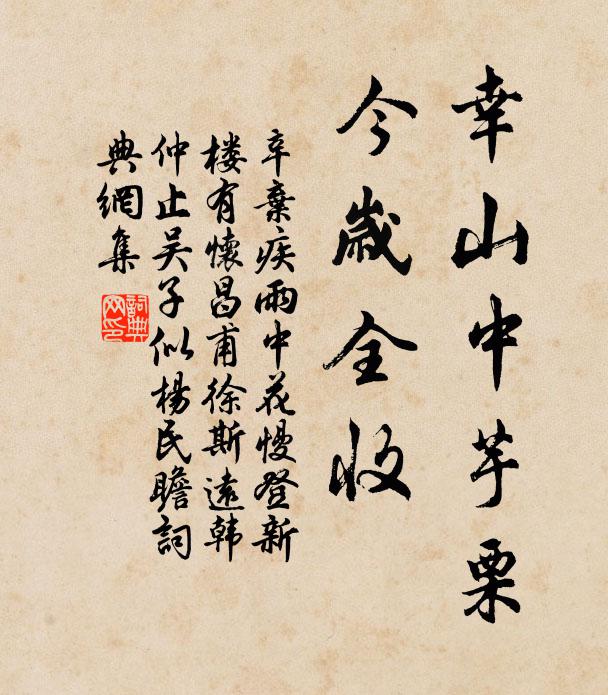 幸山中芋栗
今歲全收
辛棄疾雨中花慢登新
楼有懷昌甫徐斯遠韩
仲止吴子似楊民瞻詞
典網集
詞典
网印